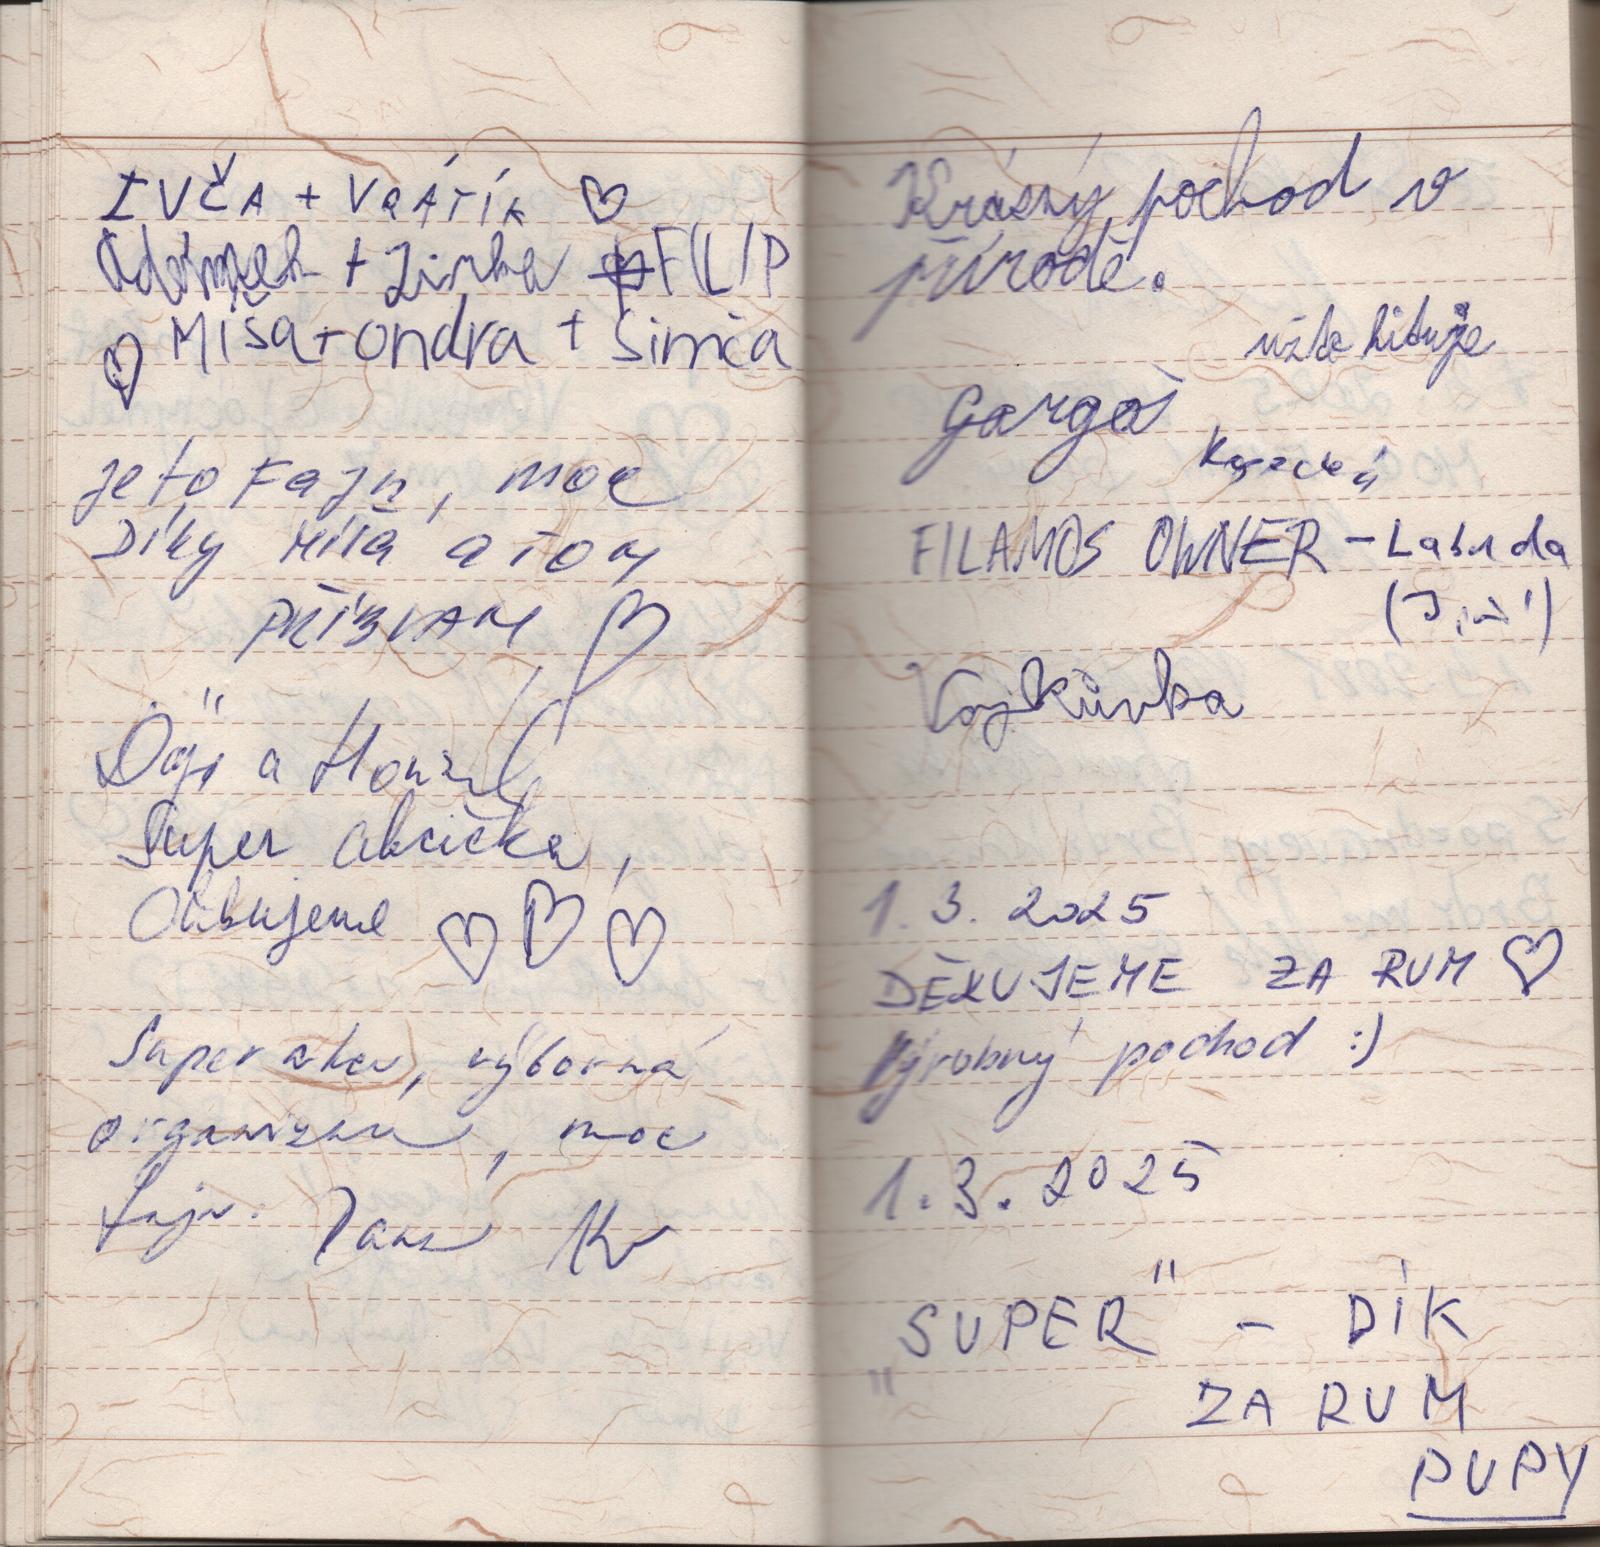 IVČA + VRÁŤÍK ♡
Adámek + Jirka FILIP
♡ Míša + ondra + Simča
je to Fajn, moc
Díky Míla a Tom
PŘÍBRAM ♡
a Honza
Super akcička,
Olibujeme ♡ ♡ ♡
Super akce, výborná
organizace, moc
fajn. Jana
Krásný pochod v
přírodě.
Gargoš
FILAMOS OWNER - Labuda
(Jiří)
Vojkůvka
1. 3. 2025
DĚKUJEME ZA RUM ♡
Výrobný pochod :)
1. 3. 2025
„SUPER" - DÍK
ZA RUM
PUPY